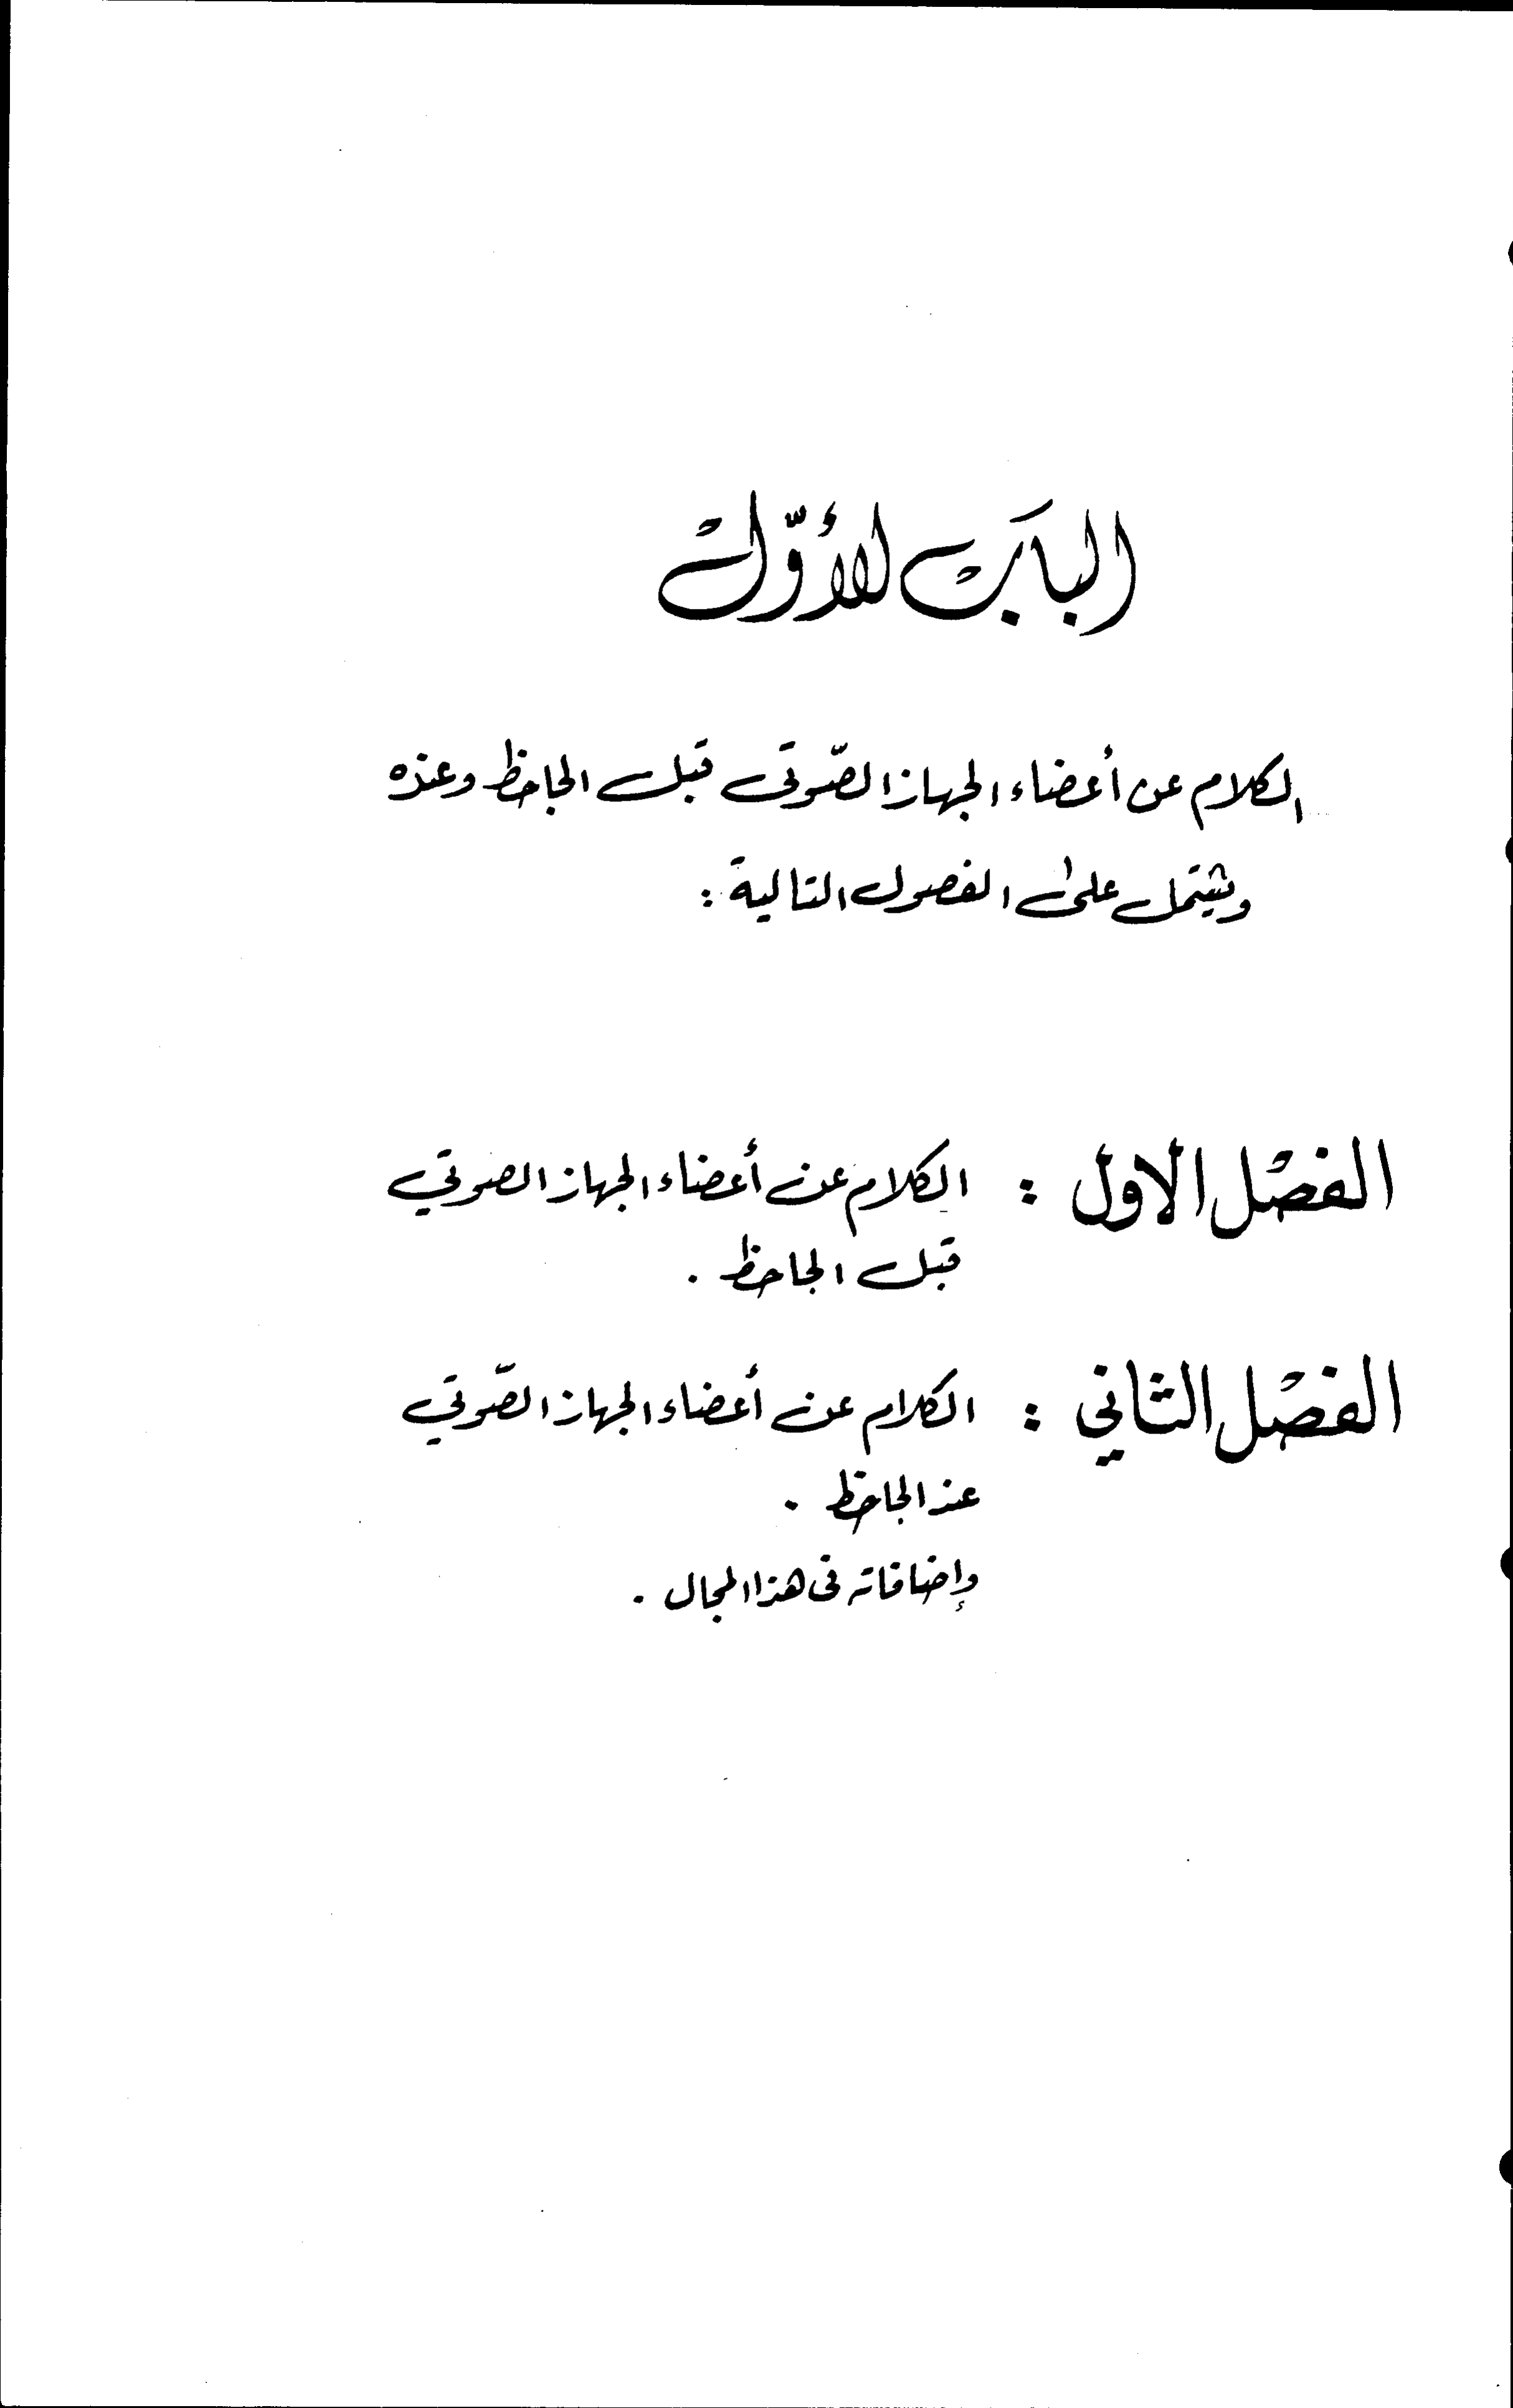 الباب الأوّل
الكلام عن أعضاء الجهاز الصّوتى قبل الجاحظ وعنده
ويشتمل على الفصول التالية :
الفصل الاول : الكلام عن أعضاء الجهاز الصوتي
قبل الجاحظ .
الفصل الثاني : الكلام عن أعضاء الجهاز الصّوتي
عند الجاحظ .
وإضافاته فى هذا المجال .